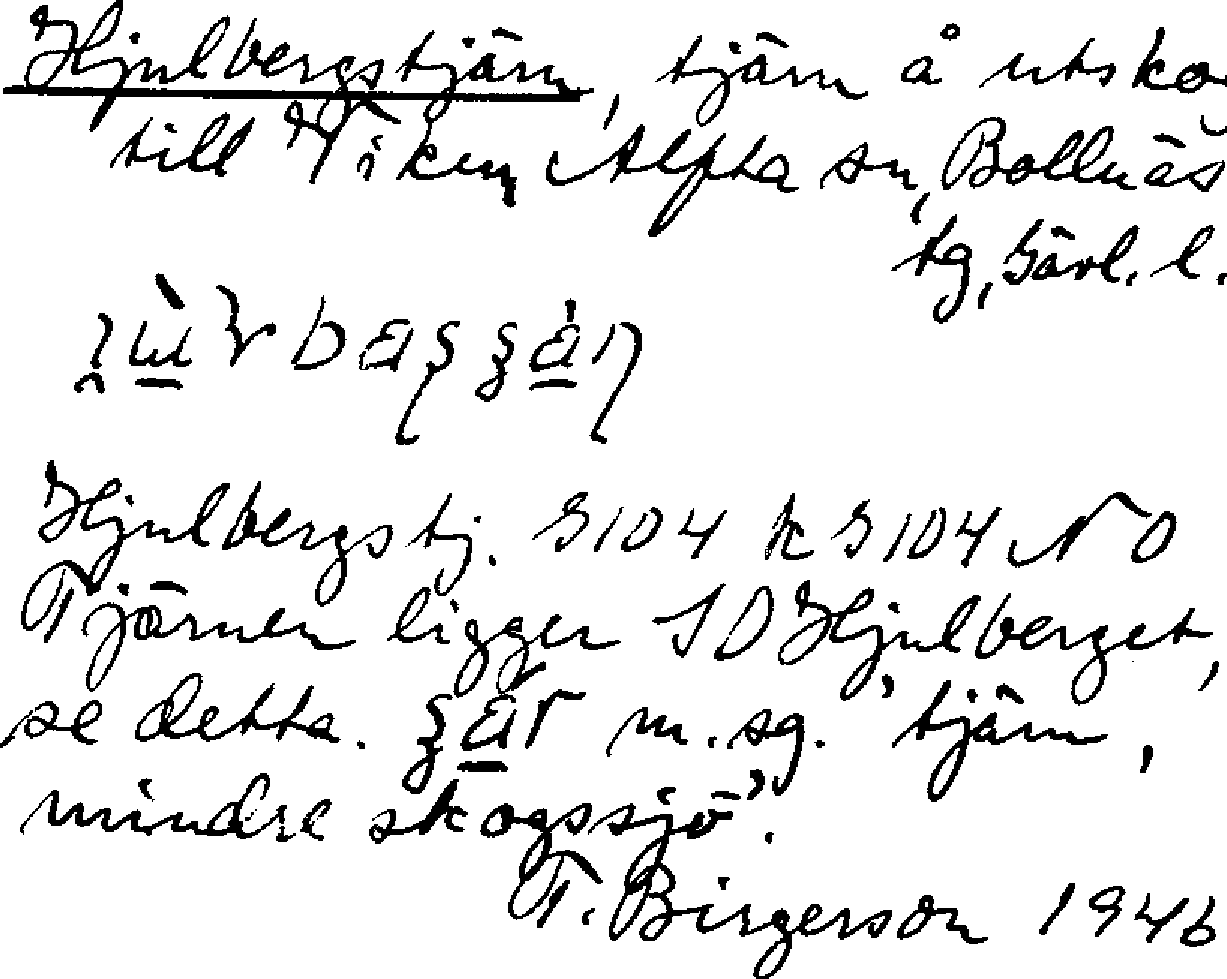 Hjulbergstjärn, tjärn å utsko
till Viken, Alfta sn, Bollnäs
tg, Gävl. l.
Hjulbergstj. G104 k G104 NO
Tjärnen ligger SO Hjulberget,
se detta. m. sg. 'tjärn,
mindre skogssjö'.
T. Birgerson 1946